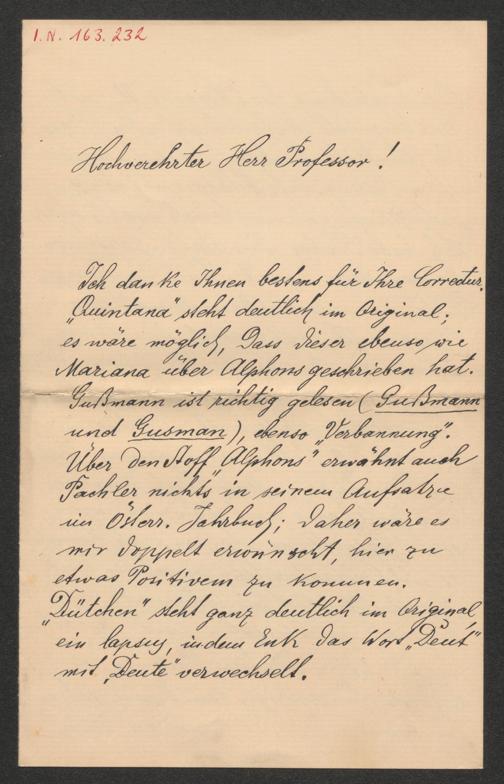 I. N. 163.232
Hochverehrter Herr Professor!
Ich danke Ihnen bestens für Ihre Correctur.
„Quintana" steht deutlich im Original;
es wäre möglich, dass dieser ebenso wie
Mariana über Alphons geschrieben hat.
Gußmann ist richtig gelesen (Gußmann
und Gusman), ebenso „Verbannung".
Über den Stoff „Alphons" erwähnt auch
Pachler nichts in seinem Aufsatze
im Österr. Jahrbuch; daher wäre es
mir doppelt erwünscht, hier zu
etwas Positivem zu kommen.
„Dütchen" steht ganz deutlich im Original
ein lapsus, indem Enk das Wort „Deut"
mit „Deute" verwechselt.